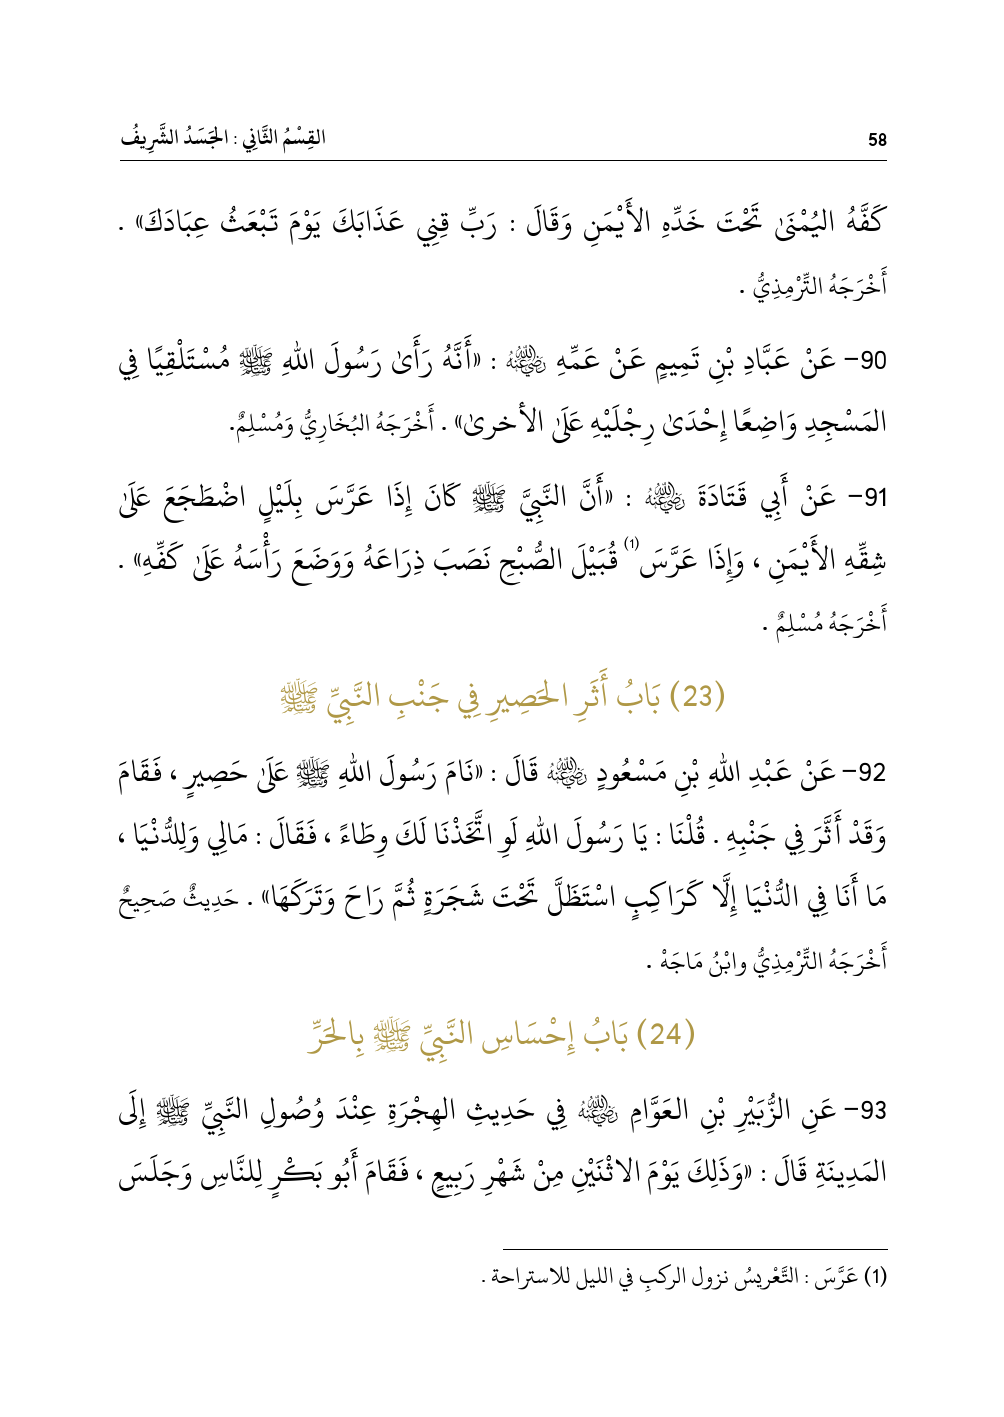 58
القِسْمُ الثَّانِي : الجَسَدُ الشَّرِيفُ
كَفَّهُ اليُمْنَىٰ تَحْتَ خَدِّهِ الأَيْمَنِ وَقَالَ : رَبِّ قِنِي عَذَابَكَ يَوْمَ تَبْعَثُ عِبَادَكَ» .
أَخْرَجَهُ التِّرْمِذِيُّ .
90- عَنْ عَبَّادِ بْنِ تَمِيمٍ عَنْ عَمِّهِ رضي الله عنه : «أَنَّهُ رَأَىٰ رَسُولَ اللهِ ﷺ مُسْتَلْقِيًا فِي
المَسْجِدِ وَاضِعًا إِحْدَىٰ رِجْلَيْهِ عَلَىٰ الأخرىٰ» . أَخْرَجَهُ البُخَارِيُّ وَمُسْلِمٌ.
91- عَنْ أَبِي قَتَادَةَ رضي الله عنه : «أَنَّ النَّبِيَّ ﷺ كَانَ إِذَا عَرَّسَ بِلَيْلٍ اضْطَجَعَ عَلَىٰ
شِقِّهِ الأَيْمَنِ ، وَإِذَا عَرَّسَ(1) قُبَيْلَ الصُّبْحِ نَصَبَ ذِرَاعَهُ وَوَضَعَ رَأْسَهُ عَلَىٰ كَفِّهِ» .
أَخْرَجَهُ مُسْلِمٌ .
(23) بَابُ أَثَرِ الحَصِيرِ فِي جَنْبِ النَّبِيِّ ﷺ
92- عَنْ عَبْدِ اللهِ بْنِ مَسْعُودٍ رضي الله عنه قَالَ : «نَامَ رَسُولَ اللهِ ﷺ عَلَىٰ حَصِيرٍ ، فَقَامَ
وَقَدْ أَثَّرَ فِي جَنْبِهِ . قُلْنَا : يَا رَسُولَ اللهِ لَوِ اتَّخَذْنَا لَكَ وِطَاءً ، فَقَالَ : مَالِي وَلِلدُّنْيَا ،
مَا أَنَا فِي الدُّنْيَا إِلَّا كَرَاكِبٍ اسْتَظَلَّ تَحْتَ شَجَرَةٍ ثُمَّ رَاحَ وَتَرَكَهَا» . حَدِيثٌ صَحِيحٌ
أَخْرَجَهُ التِّرْمِذِيُّ وابْنُ مَاجَهْ .
(24) بَابُ إِحْسَاسِ النَّبِيِّ ﷺ بِالحَرِّ
93- عَنِ الزُّبَيْرِ بْنِ العَوَّامِ رضي الله عنه فِي حَدِيثِ الهِجْرَةِ عِنْدَ وُصُولِ النَّبِيِّ ﷺ إِلَى
المَدِينَةِ قَالَ : «وَذَلِكَ يَوْمَ الاثْنَيْنِ مِنْ شَهْرِ رَبِيعٍ ، فَقَامَ أَبُو بَكْرٍ لِلنَّاسِ وَجَلَسَ
(1) عَرَّسَ : التَّعْرِيسُ نزول الركبِ في الليل للاستراحة .